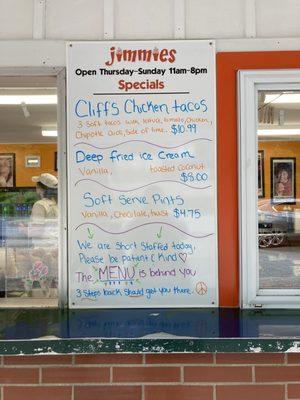 jimmies
Open Thursday-Sunday 11am-8pm
Specials
Cliffs Chicken tacos
3 Soft tacos with lettuce, tomato, Chicken,
Chipotle aioli, side of lime. $10.99
Deep fried ice Cream
Vanilla, toasted Coconut
$8.00
Soft Serve Pints
Vanilla, Chocolate, twist $4.75
We are Short Staffed today,
Please be patient & Kind
The MENU is behind you
3 Steps back Should get you there.